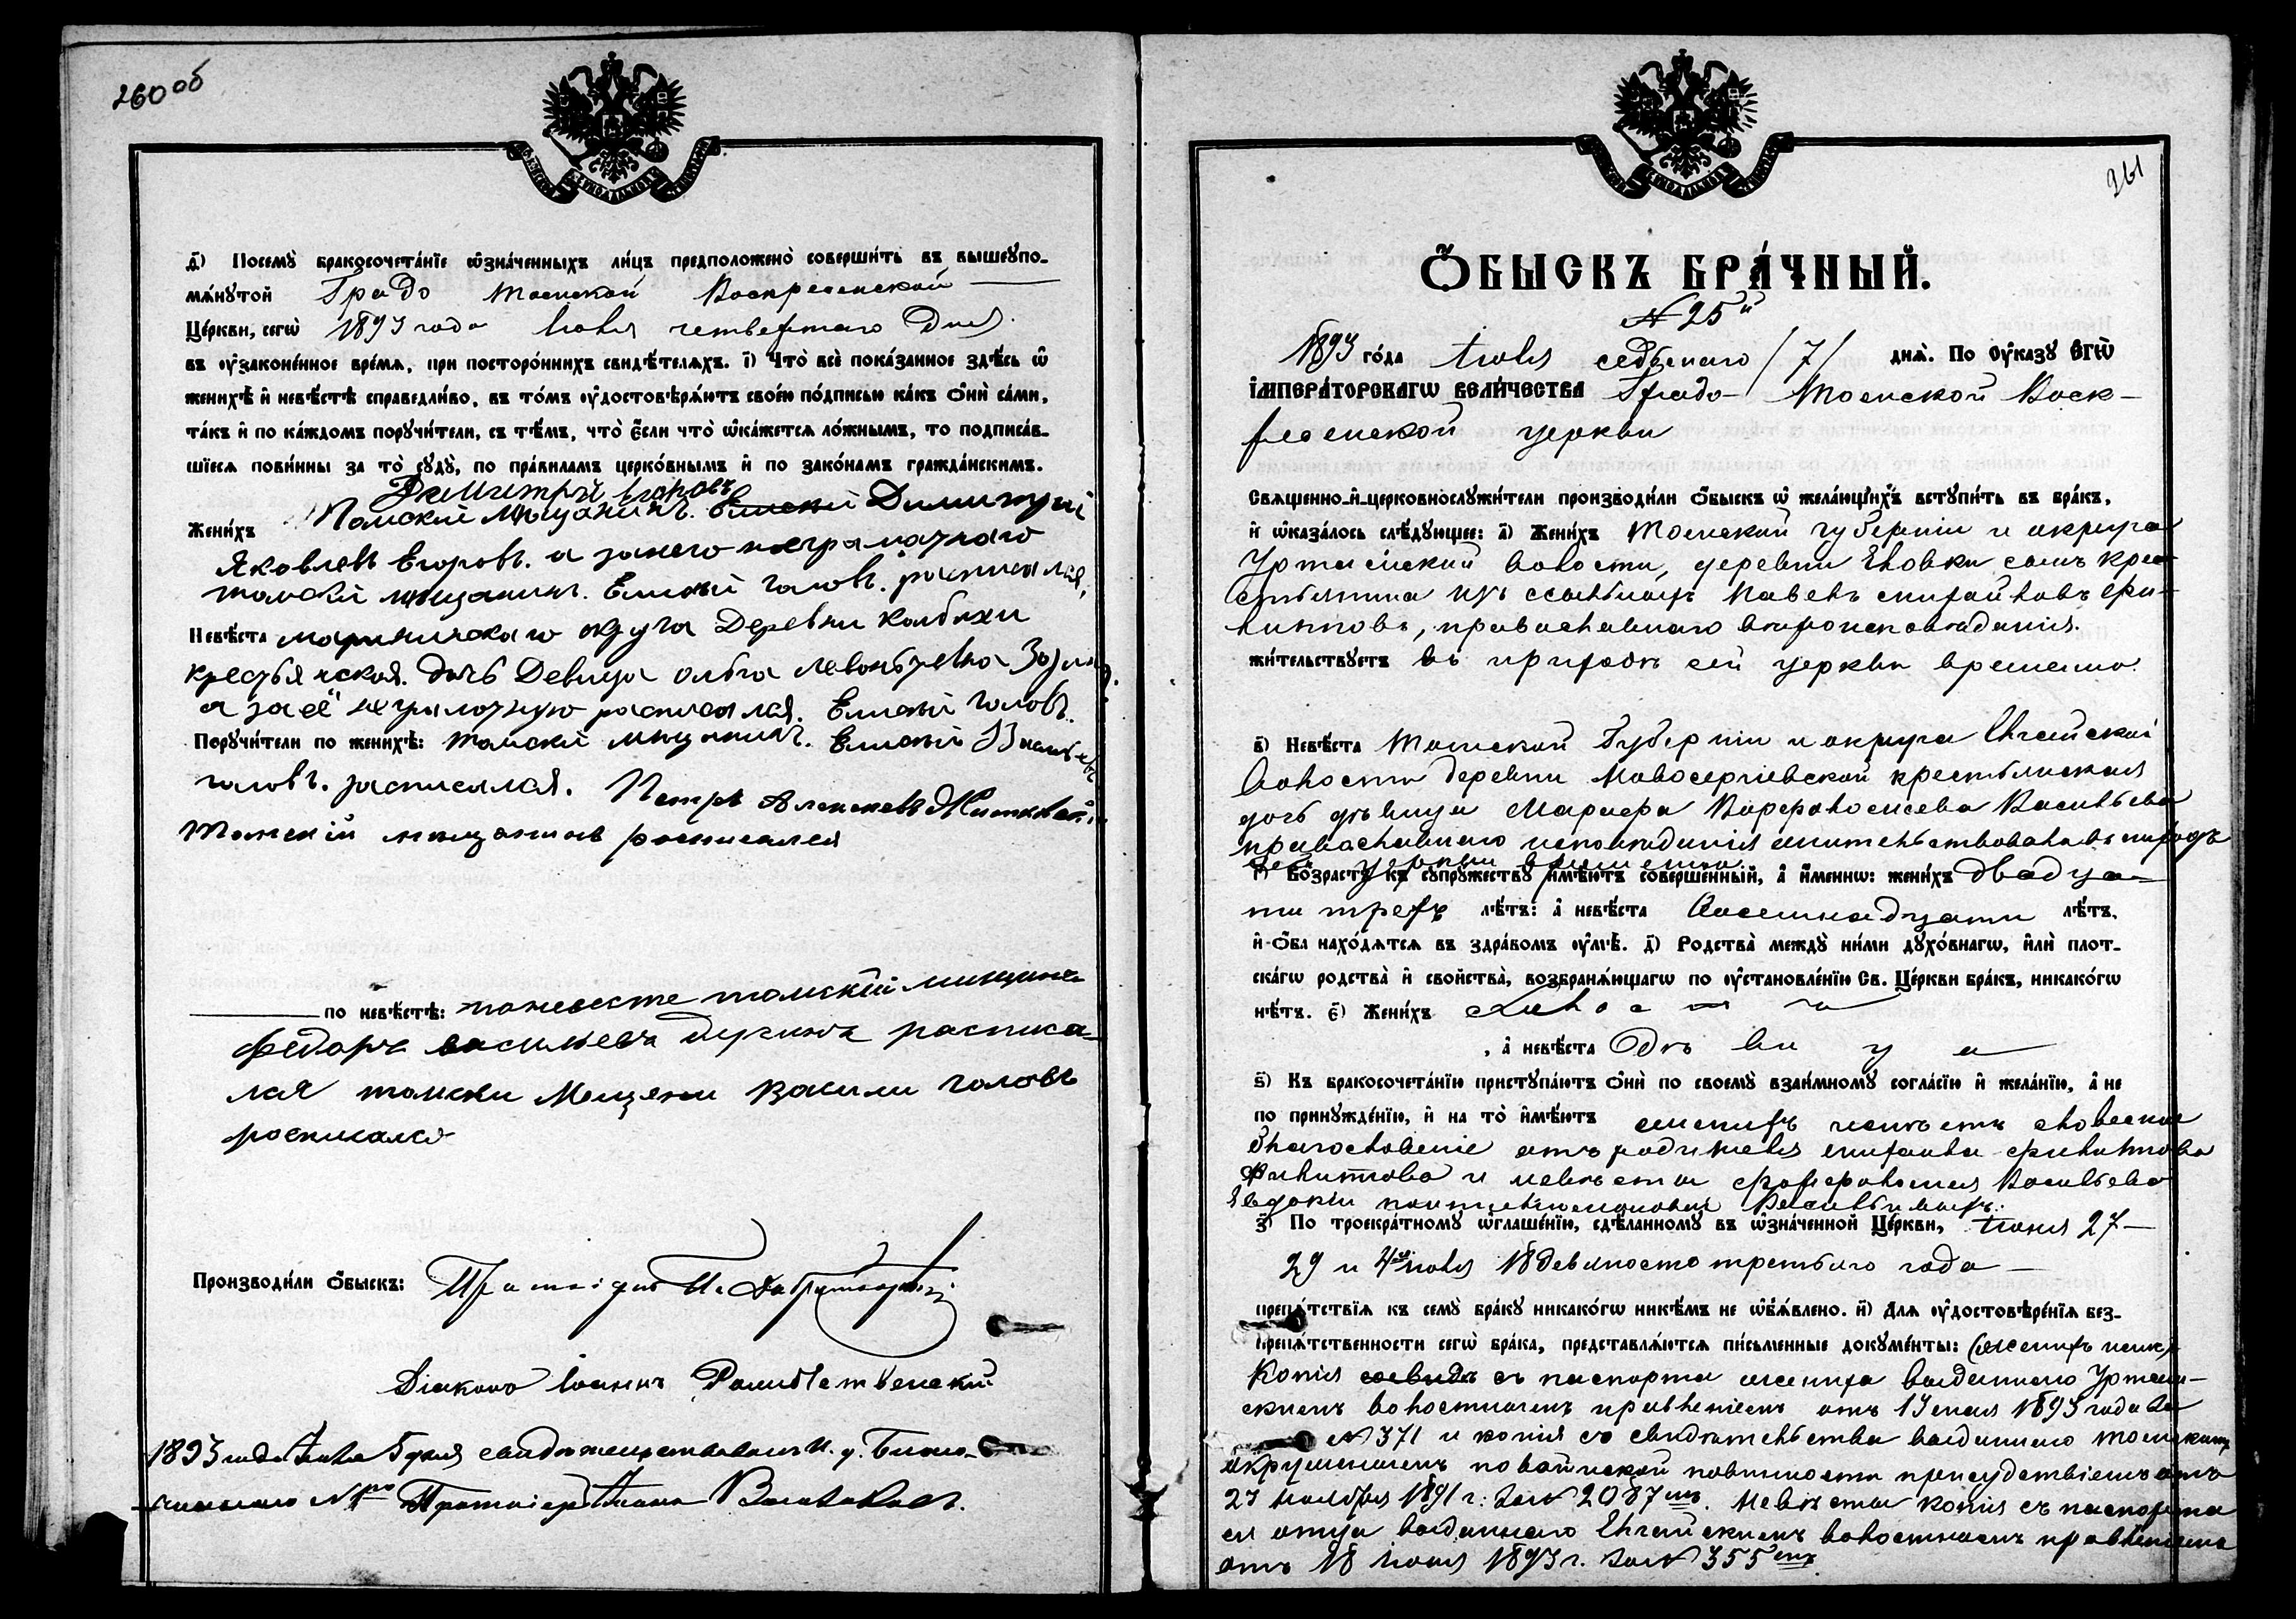 260 об
д҃) Посемꙋ̀ бракосочета́нїе ѡ҆зна́ченныхъ ли́цъ предположено̀ соверши́ть въ вышеупо-
мѧ́нутой Градо Томской Воскресенской
Це́ркви, сегѡ̀ 1893 года Іюля четвертаго дня.
въ ᲂу҆зако́ненное вре́мѧ, при посторо́ннихъ свидѣ́телѧхъ. і҃) Что̀ всѐ пока́занное здѣ́сь ѡ҆
женихѣ̀ и҆ невѣ́стѣ справедли́во, въ то́мъ ᲂу҆достовѣрѧ́ютъ свое́ю по́дписью ка́къ ѻ҆нѝ са́ми,
та́къ и҆ по ка́ждомъ порꙋчи́тели, съ тѣ́мъ, что̀ є҆́сли что̀ ѡ҆ка́жется ло́жнымъ, то подписа́в-
шїеся пови́нны за то̀ сꙋдꙋ̀, по пра́виламъ церко́внымъ и҆ по зако́намъ гражда́нскимъ.
Демитрій Егоровъ
Жени́хъ Томскій мѣщанинъ. Димитрій
Яковлевъ Егоровъ. а за него неграмотнаго
томскій мещанинъ. Елисей Головъ. расписался,
Невѣ́ста маріинскаго округа Деревни Колбихи
крестьянская. дочь Девица олга Левонтьева
а за её неграмотную расписался. Елисей Головъ.
Порꙋчи́тели по женихѣ̀: томскій мещанинъ. Елисей Васильевъ
Головъ. расписался. Петръ Алексеевъ
Томскій мещанинъ росписался
по невѣ́стѣ: поневесте томскій мищинъ
федоръ васильевъ расписа-
лся томски Мещени Васили Головъ
росписался
Производи́ли ѻ҆́быскъ: Протоіерей
Діаконъ Іоаннъ Рождественскій
1893 года Іюля 5 дня свидѣтельствовалъ И. д. Благо-
чиннаго № 1го Протоіерей
261
Ѻ҆́БЫСКЪ БРА́ЧНЫЙ.
№ 25й
1893 го́да Іюля седьмаго /7/ днѧ̀. По ᲂу҆ка́зꙋ Є҆гѡ̀
І҆мпера́торскагѡ вели́чества Градо-Томской Воск-
ресенской церкви
Свѧще́нно-и҆-церковнослꙋжи́тели производи́ли ѻ҆́быскъ ѡ҆ жела́ющихъ встꙋпи́ть въ бра́къ,
и҆ ѡ҆каза́лось слѣ́дꙋющее: а҃) Жени́хъ Томской губерніи и округа
Уртамской волости, деревни Еловки сынъ крес-
тьянина изъ ссыльныхъ Павелъ Фи-
липповъ, православнаго вѣроисповѣданія.
жи́тельствꙋетъ въ приходѣ сей церкви временно.
в҃) Невѣ́ста Томской Губерніи и округа Елгайской
волости деревни Новосергіевской крестьянская
дочь дѣвица Марѳа Варфоломеева Васильева
православнаго исповѣданія жительствовала въ приходѣ
сей церкви временно.
г҃) Во́зрастъ къ сꙋпрꙋ́жествꙋ и҆мѣ́ютъ соверше́нный, а҆ и҆́меннѡ: жени́хъ двадца-
ти трехъ лѣ́тъ: а҆ невѣ́ста Восемнадцати лѣ́тъ.
и҆ ѻ҆́ба нахо́дятся въ здра́вомъ ᲂу҆мѣ̀. д҃) Родства̀ междꙋ̀ ни́ми дꙋхо́внагѡ, и҆лѝ плот-
ска́гѡ родства̀ и҆ сво́йства̀, возбранѧ́ющагѡ по ᲂу҆становле́нїю Св. Це́ркви бра́къ, никако́гѡ
нѣ́тъ. є҃) Жени́хъ холостъ
, а҆ невѣ́ста Дѣвица
ѕ҃) Къ бракосочета́нїю пристꙋпа́ютъ ѻ҆нѝ по своемꙋ̀ взаи́мномꙋ согла́сїю и҆ жела́нїю, а҆ не
по принꙋжде́нїю, и҆ на то̀ и҆мѣ́ютъ женихъ словесное
благословеніе отъ родителя
Филиппова и невѣста Васильева
Евдокіи
з҃) По троекра́тномꙋ ѡ҆глаше́нїю, сдѣ́ланномꙋ въ ѡ҆зна́ченной Це́ркви, Іюня 27
29 и 4го Іюля 18 девяносто третьяго года
препѧ́тствїѧ къ семꙋ̀ бра́кꙋ никако́гѡ никѣ́мъ не ѡ҆б̾ѧ́влено. и҃) Для ᲂу҆достовѣре́нїѧ без-
препѧ́тственности сегѡ̀ бра́ка, представлѧ́ются пи́сьменные докꙋме́нты:
Копія съ паспорта жениха выданнаго Уртам-
скимъ волостнымъ правленіемъ отъ 13 мая 1893 года за
№ 371 и копія со свидѣтельства выданнаго Томскимъ
окружнымъ по воинской повинности присудствіемъ отъ
23 ноября 1891 г. за № 2087мъ. Невѣсты копія съ паспорта
ея отца выданнаго Елгайскимъ волостнымъ правленіемъ
отъ 18 Іюня 1893 г. за № 355мъ